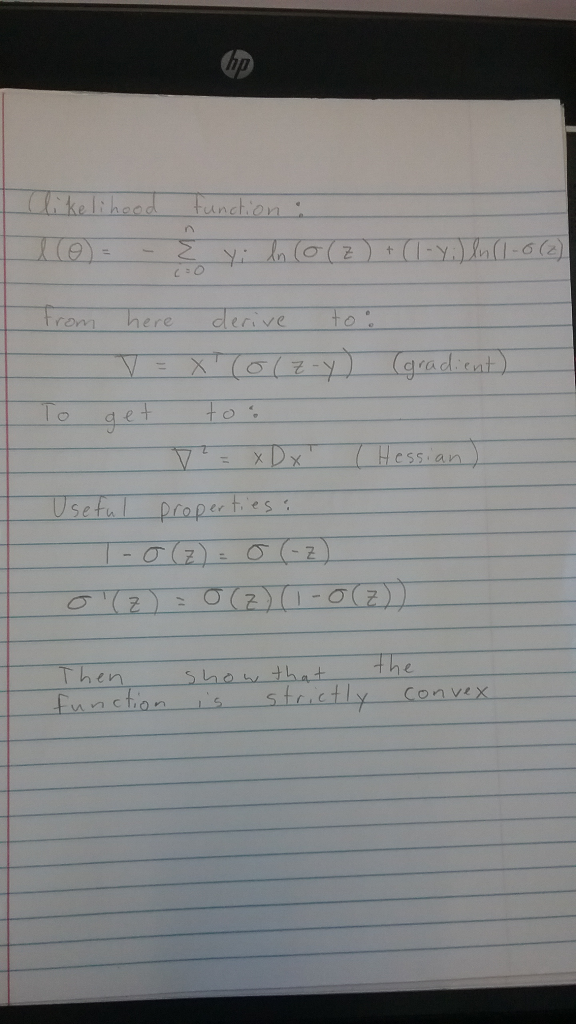 hp
(likelihood function:
l(θ) = - n Σ i=0 yi ln(σ(z) + (1-yi) ln(1-σ(z)
from here derive to:
∇ = X^T (σ(z-y) (gradient)
To get to:
∇² = xDx^T (Hessian)
Useful properties:
1 - σ(z) = σ(-z)
σ'(z) = σ(z)(1-σ(z))
Then show that the
function is strictly convex